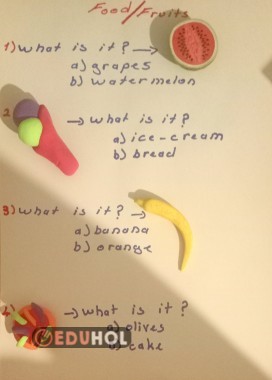 Food/Fruits
1) What is it? →
a) grapes
b) watermelon
2 → What is it?
a) ice-cream
b) bread
3) What is it? →
a) banana
b) orange
4 → What is it?
a) olives
b) cake
EDUHOL